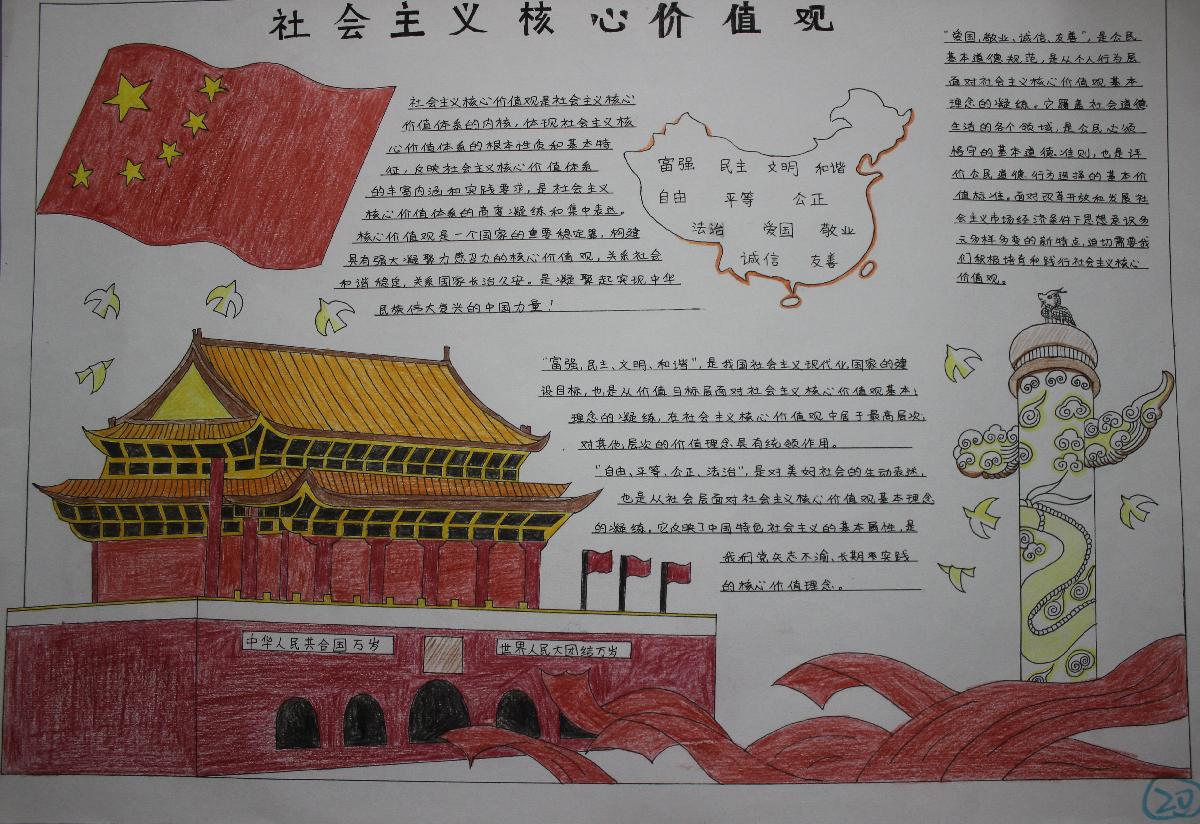 社会主义核心价值观
社会主义核心价值观是社会主义核心
价值体系的内核，体现社会主义核
心价值体系的根本性质和基本特
征，反映社会主义核心价值体系
的丰富内涵和实践要求，是社会主义
核心价值体系的高度凝练和集中表达。
核心价值观是一个国家的重要稳定器，构建
具有强大凝聚力感召力的核心价值观，关系社会
和谐稳定，关系国家长治久安。是凝聚起实现中华
民族伟大复兴的中国力量！
富强 民主 文明 和谐
自由 平等 公正
法治 爱国 敬业
诚信 友善
"爱国，敬业、诚信、友善"，是公民
基本道德规范，是从个人行为层
面对社会主义核心价值观基本
理念的凝练。它覆盖社会道德
生活的各个领域，是公民必须
恪守的基本道德准则，也是评
价公民道德行为选择的基本价
值标准。面对改革开放和发展社
会主义市场经济条件下思想意识多
元多样多变的新特点，迫切需要我
们积极培育和践行社会主义核心
价值观。
"富强，民主、文明、和谐"，是我国社会主义现代化国家的建
设目标，也是从价值目标层面对社会主义核心价值观基本
理念的凝练，在社会主义核心价值观中居于最高层次，
对其他层次的价值理念具有统领作用。
"自由、平等、公正、法治"，是对美好社会的生动表达，
也是从社会层面对社会主义核心价值观基本理念
的凝练，它反映了中国特色社会主义的基本属性，是
我们党矢志不渝、长期实践
的核心价值理念。
中华人民共合国万岁
世界人民大团结万岁
20